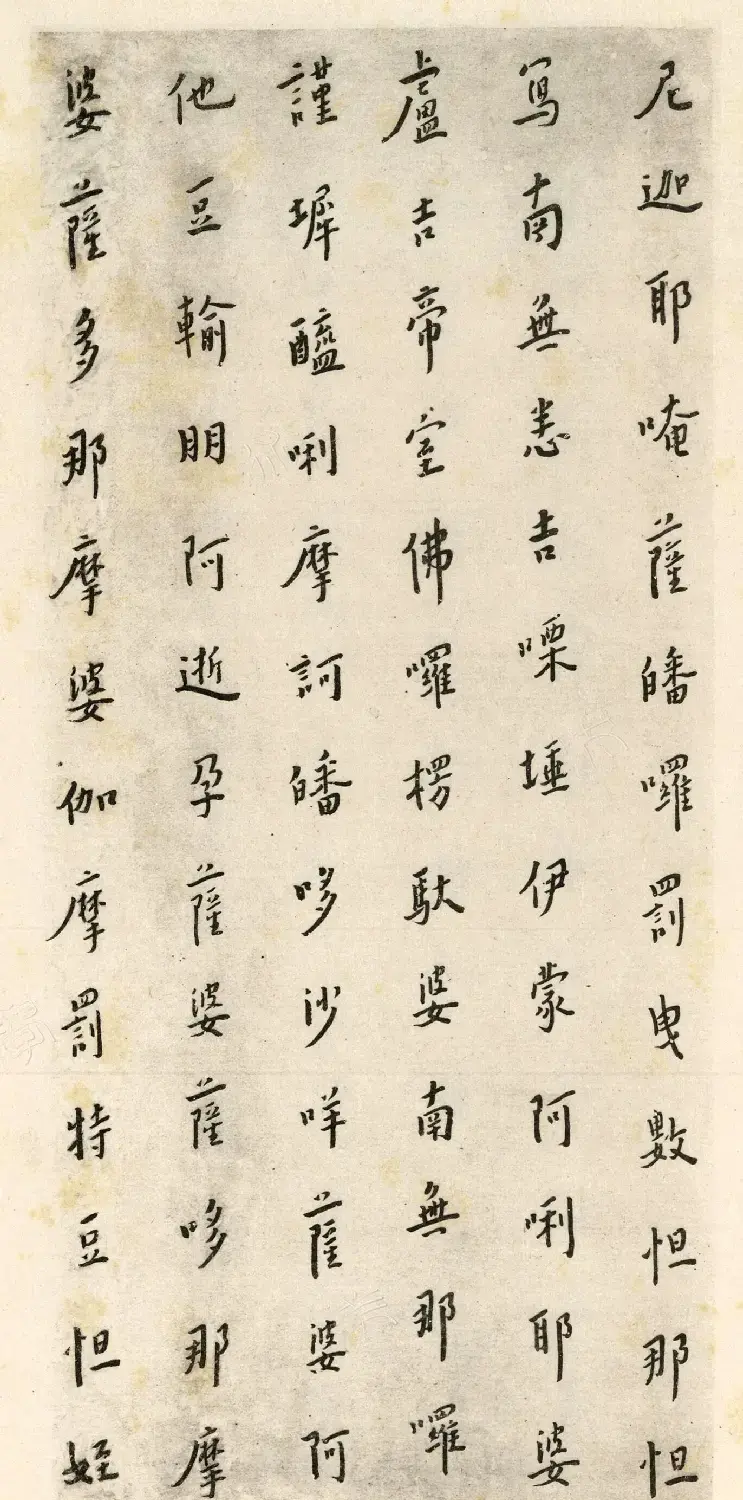 尼迦耶唵薩皤囉罰曳數怛那怛
寫南無悉吉㗚埵伊蒙阿唎耶婆
盧吉帝室佛囉楞馱婆南無那囉
謹墀醯唎摩訶皤哆沙咩薩婆阿
他豆輸朋阿逝孕薩婆薩哆那摩
婆薩多那摩婆伽摩罰特豆怛姪